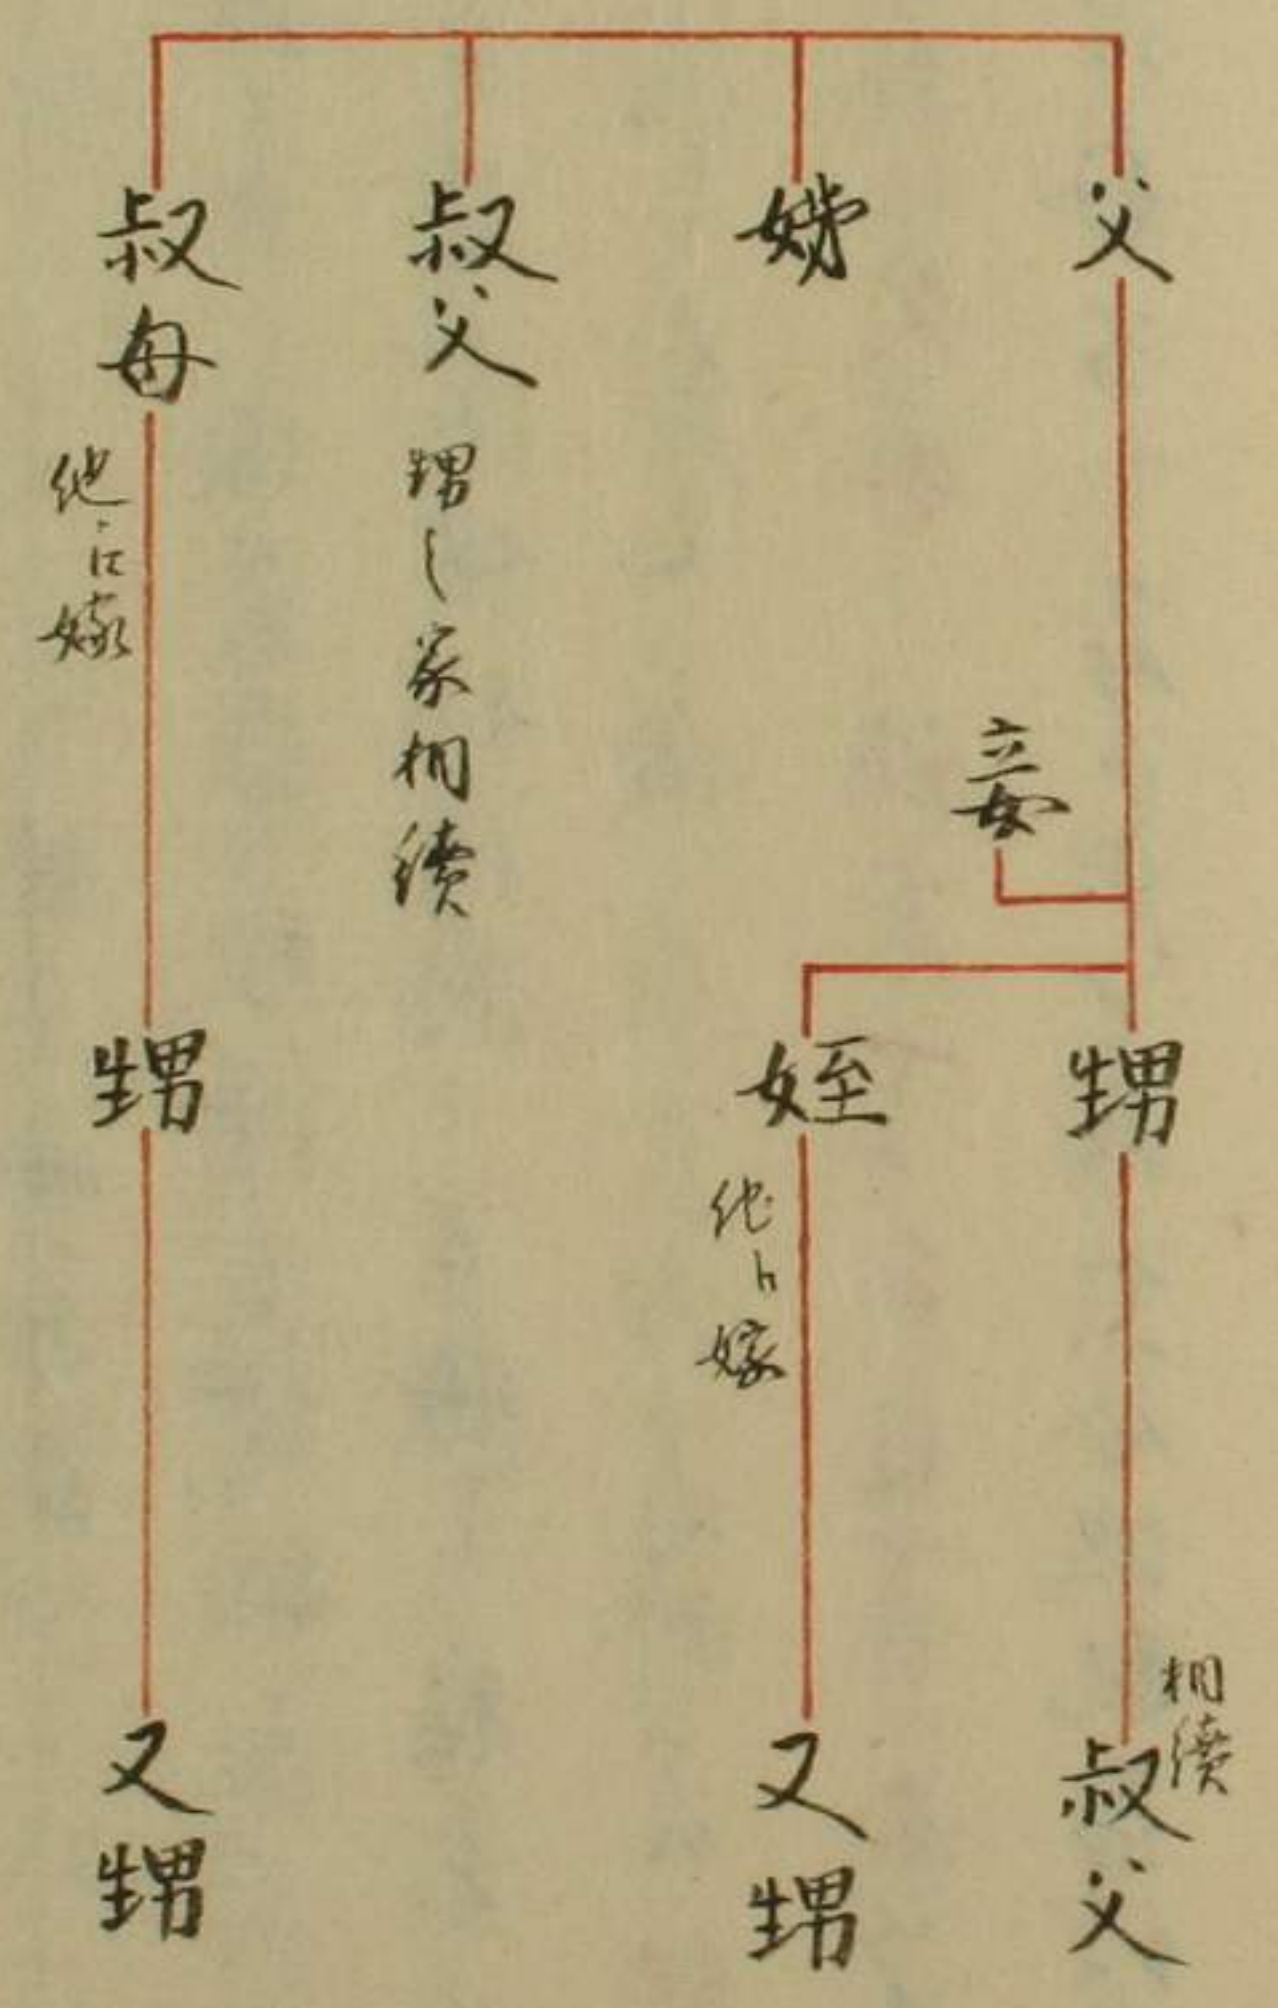 父
妾
甥
相續
叔父
姪
他江嫁
又甥
叔父
甥之家相續
叔母
他江嫁
甥
又甥